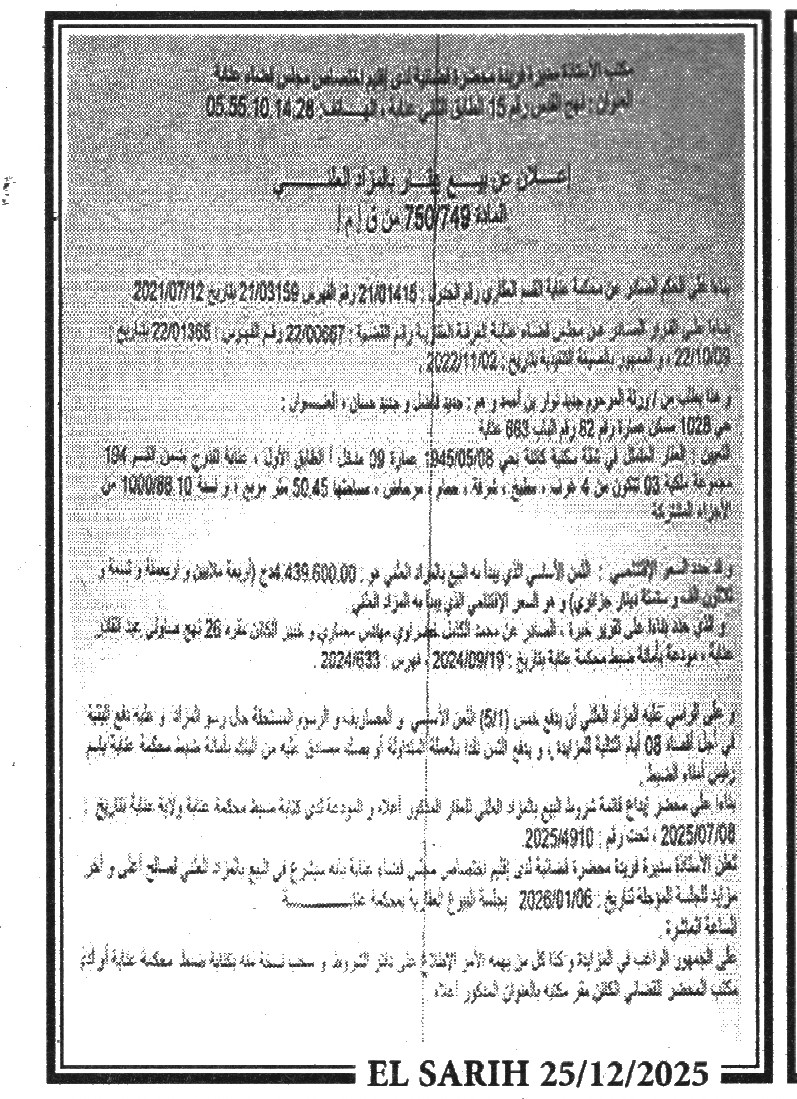 مكتب الأستاذة منيرة فريدة محضرة قضائية لدى إقليم إختصاص مجلس قضاء عنابة
العنوان : نهج القدس رقم 15 الطابق الثاني عنابة ، الهـــاتف: 05.55.10.14.28
إعــلان عن بيــع عقــار بالمزاد العلنــــي
المادة 750/749 من ق إ م إ
بناءا على الحكم الصادر عن محكمة عنابة القسم العقاري رقم الجدول : 21/01415 رقم الفهرس 21/03159 بتاريخ 2021/07/12
بناءا على القرار الصادر عن مجلس قضاء عنابة الغرفة العقارية رقم القضية : 22/00667 رقم الفهرس : 22/01365 بتاريخ :
22/10/09 ، و الممهور بالصيغة التنفيذية بتاريخ : 2022/11/02 .
و هذا بطلب من / ورثة المرحوم جديد نوار بن أحمد و هم : جديد فاضل و جديد حسان ، العنــــوان :
حي 1028 مسكن عمارة رقم 62 رقم الباب 663 عنابة
التعيين : العقار المتمثل في شقة سكنية كائنة بحي 1945/05/08 عمارة 09 مدخل أ الطابق الأول ، عنابة تندرج ضمن القسم 194
مجموعة ملكية 03 تتكون من 4 غرف ، مطبخ ، شرفة ، حمام ، مرحاض ، مساحتها 50.45 متر مربع ، و نسبة 1000/88.10 من
الأجزاء المشتركة
و قد حدد السعر الإفتتاحي : الثمن الأساسي الذي يبدأ به البيع بالمزاد العلني هو : 4.439.600.00دج (أربعة ملايين و أربعمئة و تسعة و
ثلاثون ألف و ستمئة دينار جزائري) و هو السعر الإفتتاحي الذي يبدأ به المزاد العلني
و الذي حدد بناءا على تقرير خبرة ، الصادر عن محمد الكامل خضراوي مهندس معماري و خبير الكائن مقره 26 نهج عبد القادر
عنابة ، مودعة بأمانة ضبط محكمة عنابة بتاريخ : 2024/09/19 ، فهرس : 2024/633 .
و على الراسي عليه المزاد العلني أن يدفع خمس (5/1) الثمن الأساسي و المصاريف و الرسوم المستحقة حال رسو المزاد و عليه دفع البقية
في أجل أقصاه 08 أيام التالية للمزايدة ، و يدفع الثمن نقدا بالعملة المتداولة أو بصك مصادق عليه من البنك بأمانة ضبط محكمة عنابة باسم
رئيس أمناء الضبط
بناءا على محضر إيداع قائمة شروط البيع بالمزاد العلني للعقار المذكور أعلاه و المودعة لدى كتابة ضبط محكمة عنابة ولاية عنابة بتاريخ :
2025/07/08 ، تحت رقم : 2025/4910.
تعلن الأستاذة منيرة فريدة محضرة قضائية لدى إقليم إختصاص مجلس قضاء عنابة بأنه سيشرع في البيع بالمزاد العلني لصالح أعلى و آخر
مزايد للجلسة المؤجلة بتاريخ : 2026/01/06 بجلسة البيوع العقارية بمحكمة عنابـــــــــة
الساعة العاشرة.
على الجمهور الراغب في المزايدة و كذا كل من يهمه الأمر الإطلاع على دفتر الشروط و سحب نسخة منه بكتابة ضبط محكمة عنابة أو أمام
مكتب المحضر القضائي الكائن مقر مكتبه بالعنوان المذكور أعلاه
EL SARIH 25/12/2025